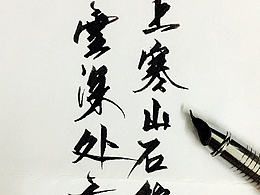 上寒山石
雲深处